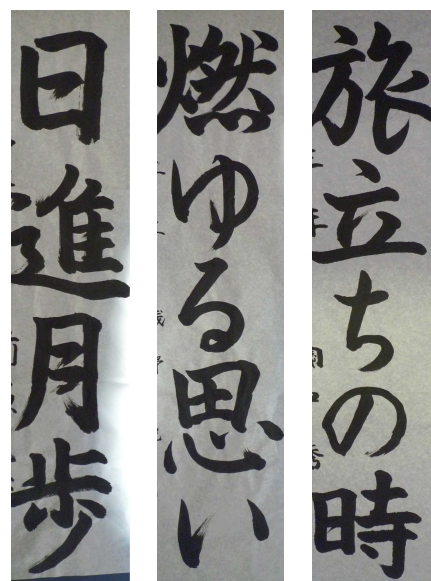 旅立ちの時
燃ゆる思い
日進月歩